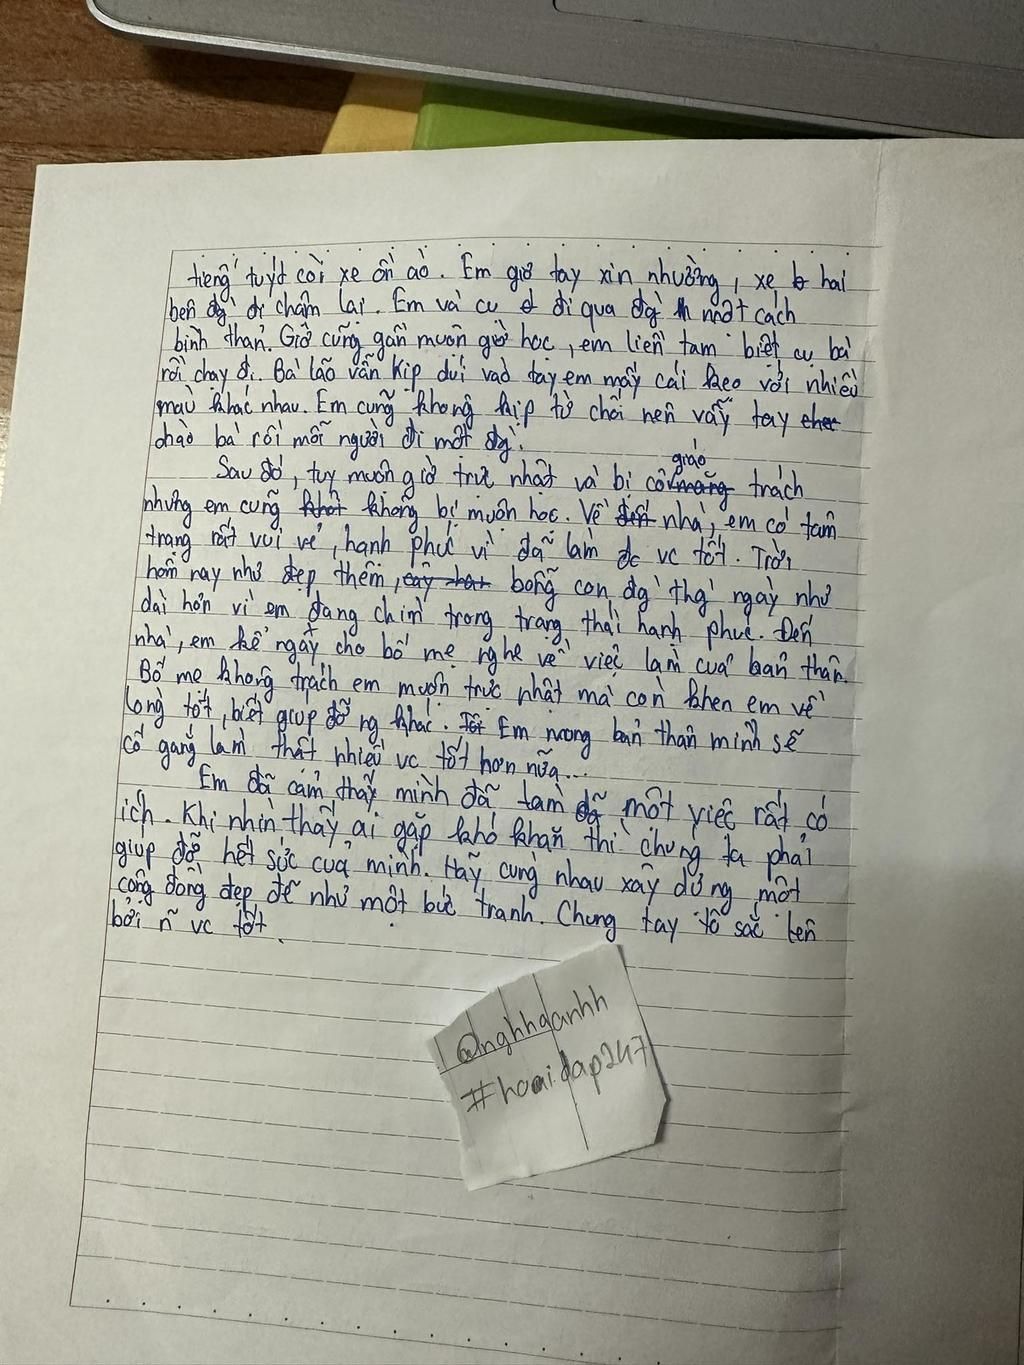 tiếng tuýt còi xe ồn ào. Em giơ tay xin nhường, xe hai
bên đg đi chậm lại. Em và cụ đi qua đg một cách
bình thản. Giờ cũng gần muộn giờ học, em liền tạm biệt cụ bà
rồi chạy đi. Bà lão vẫn kịp dúi vào tay em mấy cái kẹo với nhiều
màu khác nhau. Em cũng không kịp từ chối nên vẫy tay
chào bà rồi mỗi người đi một đg.
Sau đó, tuy muộn giờ trực nhật và bị cô giáo trách
nhưng em cũng không bị muộn học. Về nhà, em có tâm
trạng rất vui vẻ, hạnh phúc vì đã làm đc vc tốt. Trời
hôm nay như đẹp thêm, bỗng con đg thg ngày như
dài hơn vì em đang chìm trong trạng thái hạnh phúc. Đến
nhà, em kể ngay cho bố mẹ nghe về việc làm của bản thân.
Bố mẹ không trách em muộn trực nhật mà còn khen em về
lòng tốt, biết giúp đỡ ng khác. Em mong bản thân mình sẽ
cố gắng làm thật nhiều vc tốt hơn nữa...
Em đã cảm thấy mình đã làm một việc rất có
ích. Khi nhìn thấy ai gặp khó khăn thì chúng ta phải
giúp đỡ hết sức của mình. Hãy cùng nhau xây dựng một
cộng đồng đẹp đẽ như một bức tranh. Chung tay tô sắc lên
bởi n~ vc tốt.
@nghhdanhh
#hoaidap247